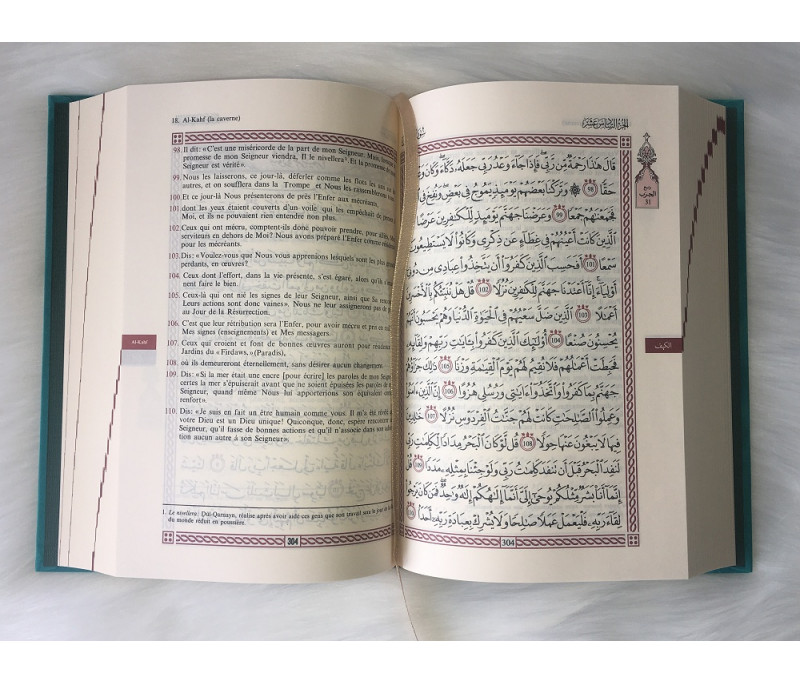 18. Al-Kahf (la caverne)
98. Il dit: «C'est une miséricorde de la part de mon Seigneur. Mais, lorsque la
promesse de mon Seigneur viendra, Il le nivellera¹. Et la promesse de mon
Seigneur est vérité».
99. Nous les laisserons, ce jour-là, déferler comme les flots les uns sur les
autres, et on soufflera dans la Trompe et Nous les rassemblerons
100. Et ce jour-là Nous présenterons de près l'Enfer aux mécréants,
101. dont les yeux étaient couverts d'un voile qui les empêchait de penser à
Moi, et ils ne pouvaient rien entendre non plus.
102. Ceux qui ont mécru, comptent-ils donc pouvoir prendre, pour alliés, Mes
serviteurs en dehors de Moi? Nous avons préparé l'Enfer comme résidence
pour les mécréants.
103. Dis: «Voulez-vous que Nous vous apprenions lesquels sont les plus
perdants, en œuvres?
104. Ceux dont l'effort, dans la vie présente, s'est égaré, alors qu'ils
nent faire le bien.
105. Ceux-là qui ont nié les signes de leur Seigneur, ainsi que Sa rencontre.
Leurs actions sont donc vaines». Nous ne leur assignerons pas de poids
au Jour de la Résurrection.
106. C'est que leur rétribution sera l'Enfer, pour avoir mécru et pris en
Mes signes (enseignements) et Mes messagers.
107. Ceux qui croient et font de bonnes œuvres auront pour résidence les
Jardins du «Firdaws,»(Paradis),
108. où ils demeureront éternellement, sans désirer aucun changement.
109. Dis: «Si la mer était une encre [pour écrire] les paroles de mon Seigneur,
certes la mer s'épuiserait avant que ne soient épuisées les paroles de mon
Seigneur, quand même Nous lui apporterions son équivalent comme
renfort».
110. Dis: «Je suis en fait un être humain comme vous. Il m'a été révélé que
votre Dieu est un Dieu unique! Quiconque, donc, espère rencontrer son
Seigneur, qu'il fasse de bonnes actions et qu'il n'associe dans son adoration
tion aucun autre à son Seigneur».
1. Le nivellera: Dûl-Qarnayn, réalise après avoir aidé ces gens que son travail sera le jour de la
du monde réduit en poussière.
304
Al-Kahf
الجزء السادس عشر
قَالَ هَٰذَا رَحْمَةٌ مِّن رَّبِّي فَإِذَا جَاءَ وَعْدُ رَبِّي جَعَلَهُ دَكَّاءَ وَكَانَ وَعْدُ
حَقًّا ٩٨ ۞ وَتَرَكْنَا بَعْضَهُمْ يَوْمَئِذٍ يَمُوجُ فِي بَعْضٍ وَنُفِخَ فِي
فَجَمَعْنَاهُمْ جَمْعًا ٩٩ وَعَرَضْنَا جَهَنَّمَ يَوْمَئِذٍ لِّلْكَافِرِينَ عَرْضًا
الَّذِينَ كَانَتْ أَعْيُنُهُمْ فِي غِطَاءٍ عَن ذِكْرِي وَكَانُوا لَا يَسْتَطِيعُونَ
سَمْعًا ١٠١ أَفَحَسِبَ الَّذِينَ كَفَرُوا أَن يَتَّخِذُوا عِبَادِي مِن دُونِي
أَوْلِيَاءَ إِنَّا أَعْتَدْنَا جَهَنَّمَ لِلْكَافِرِينَ نُزُلًا ١٠٢ قُلْ هَلْ نُنَبِّئُكُم بِالْأَخْسَرِينَ
أَعْمَالًا ١٠٣ الَّذِينَ ضَلَّ سَعْيُهُمْ فِي الْحَيَاةِ الدُّنْيَا وَهُمْ يَحْسَبُونَ أَنَّهُمْ
يُحْسِنُونَ صُنْعًا ١٠٤ أُولَٰئِكَ الَّذِينَ كَفَرُوا بِآيَاتِ رَبِّهِمْ وَلِقَائِهِ
فَحَبِطَتْ أَعْمَالُهُمْ فَلَا نُقِيمُ لَهُمْ يَوْمَ الْقِيَامَةِ وَزْنًا ١٠٥ ذَٰلِكَ جَزَاؤُهُمْ
جَهَنَّمُ بِمَا كَفَرُوا وَاتَّخَذُوا آيَاتِي وَرُسُلِي هُزُوًا ١٠٦ إِنَّ الَّذِينَ آمَنُوا
وَعَمِلُوا الصَّالِحَاتِ كَانَتْ لَهُمْ جَنَّاتُ الْفِرْدَوْسِ نُزُلًا ١٠٧ خَالِدِينَ
فِيهَا لَا يَبْغُونَ عَنْهَا حِوَلًا ١٠٨ قُل لَّوْ كَانَ الْبَحْرُ مِدَادًا لِّكَلِمَاتِ رَبِّي
لَنَفِدَ الْبَحْرُ قَبْلَ أَن تَنفَدَ كَلِمَاتُ رَبِّي وَلَوْ جِئْنَا بِمِثْلِهِ مَدَدًا ١٠٩ قُلْ
إِنَّمَا أَنَا بَشَرٌ مِّثْلُكُمْ يُوحَىٰ إِلَيَّ أَنَّمَا إِلَٰهُكُمْ إِلَٰهٌ وَاحِدٌ فَمَن كَانَ يَرْجُو
لِقَاءَ رَبِّهِ فَلْيَعْمَلْ عَمَلًا صَالِحًا وَلَا يُشْرِكْ بِعِبَادَةِ رَبِّهِ أَحَدًا ١١٠
304
ربع
الحزب
31
الكهف